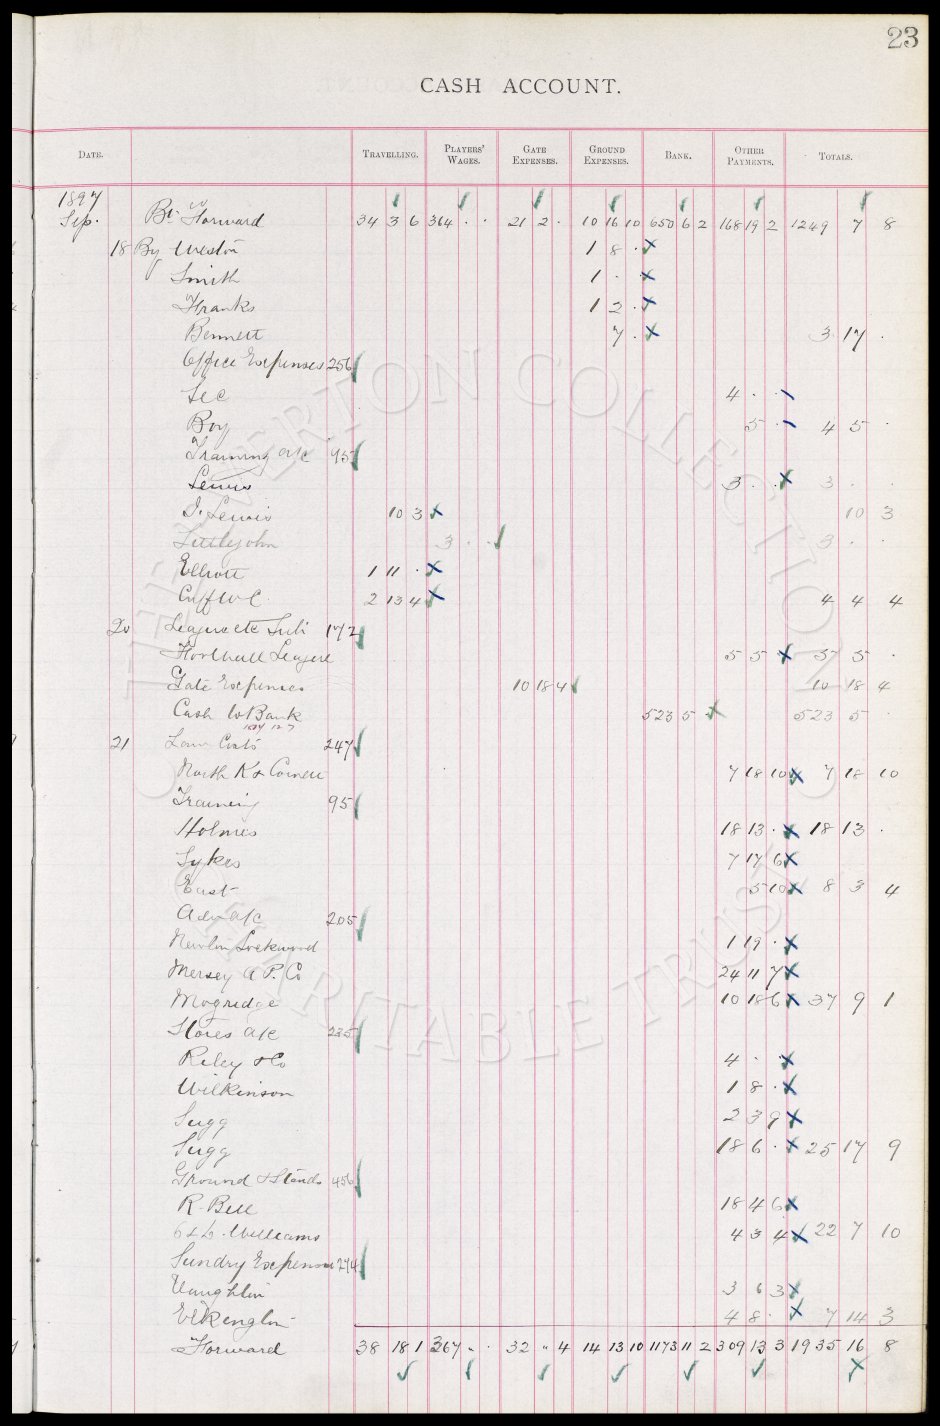 23
CASH ACCOUNT.
DATE. TRAVELLING. PLAYERS' WAGES. GATE EXPENSES. GROUND EXPENSES. BANK. OTHER PAYMENTS. TOTALS.
1897
Sep. Bt Forward 34 3 6 364 . . 21 2 . 10 16 10 650 6 2 168 19 2 1249 7 8
18 By Weston 1 8 .
Smith 1 . .
Franks 1 2 .
Bennett 7 . 3 17 .
Office Expenses 256
Sec 4 . .
Boy 5 . 4 5 .
Training a/c 95
Lewis 3 . . 3 . .
J. Lewis 10 3 10 3
Littlejohn 3 . . 3 . .
Elliott 1 11 .
2 13 4 4 4 4
20 League etc Sub 172
League 5 5 5 5 .
Gate Expenses 10 18 4 10 18 4
Cash to Bank 523 5 523 5
21 Law Costs 247
North K & Corneu 7 18 10 7 18 10
Training 95
Holmes 18 13 . 18 13 .
Sykes 7 17 6
East 5 10 8 3 4
Adv a/c 205
Lockwood 1 19 .
Mersey A P. Co 24 11 7
Mogridge 10 18 6 37 9 1
Stores a/c 235
Riley & Co 4 .
Wilkinson 1 8 .
Sugg 2 3 9
Sugg 18 6 . 25 17 9
Ground & Stands 456
R. Bell 18 4 6
Williams 4 3 4 22 7 10
Sundry Expenses 274
Vaughton 3 6 3
Elkington 4 8 . 7 14 3
Forward 38 18 1 367 " . 32 " 4 14 13 10 1173 11 2 309 13 3 1935 16 8
THE EVERTON COLLECTION
CHARITABLE TRUST